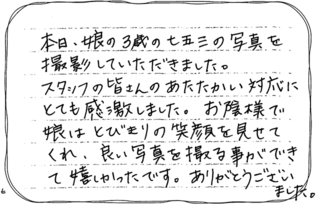 本日、娘の3歳の七五三の写真を
撮影していただきました。
スタッフの皆さんのあたたかい対応に
とても感激しました。お陰様で
娘はとびきりの笑顔を見せて
くれ、良い写真を撮る事ができ
て嬉しかったです。ありがとうござい
ました。